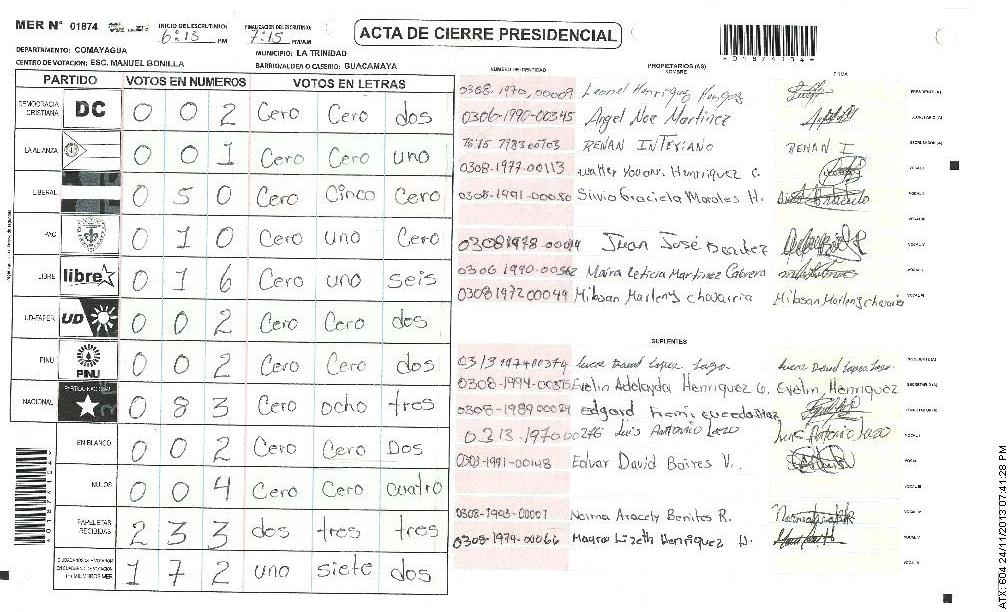 MER N° 01874
INICIO DEL ESCRUTINIO: 6:13 PM
FINALIZACION DEL ESCRUTINIO: 7:15 PM/AM
ACTA DE CIERRE PRESIDENCIAL
DEPARTAMENTO: COMAYAGUA
MUNICIPIO: LA TRINIDAD
CENTRO DE VOTACION: ESC. MANUEL BONILLA
BARRIO/ALDEA O CASERIO: GUACAMAYA
PARTIDO VOTOS EN NUMEROS VOTOS EN LETRAS
DEMOCRACIA CRISTIANA DC 0 0 2 Cero Cero dos
LA ALIANZA 0 0 1 Cero Cero uno
LIBERAL 0 5 0 Cero Cinco Cero
PAC 0 1 0 Cero uno Cero
LIBRE libre 0 1 6 Cero uno seis
UD-FAPER UD 0 0 2 Cero Cero dos
PINU PINU 0 0 2 Cero Cero dos
NACIONAL 0 8 3 Cero ocho tres
EN BLANCO 0 0 2 Cero Cero Dos
NULOS 0 0 4 Cero Cero cuatro
PAPELETAS RECIBIDAS 2 3 3 dos tres tres
1 7 2 uno siete dos
NUMERO DE IDENTIDAD PROPIETARIOS (AS) NOMBRE FIRMA
Leonel Henriquez
0306-1990-00345 Angel Noe Martinez
RENAN INTERIANO RENAN I
0308-1977-00113 Henriquez C.
0308-1991-00080 Silvia Graciela Morales H.
Juan José Benitez
0306 1990-00562 Maira Leticia Martinez Cabrera
0308 1972 00049 Mibsan Marleny chavarria Mibsan Marleny chavarria
SUPLENTES
0313 1974 00374 Lucas David Lopez Lazo
0308-1994-00315 Evelin Adelayda Henriquez G. Evelin Henriquez
0308-1989 00024 Edgard
0313-1970 00276 Luis Antonio Lazo Luis Antonio Lazo
0303-1991-00148 Edvar David Baires V.
0308-1993-00001 Norma Aracely Benites R.
0308-1974-00066 Mayra Lizeth Henriquez
ATX: 604 24/11/2013 07:41:28 PM